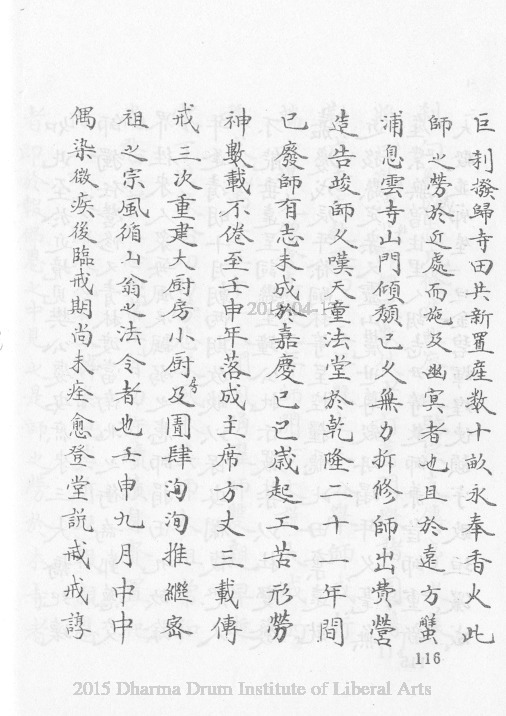 巨刹撥歸寺田共新置產数十畝永奉香火此
師之勞於近處而施及幽冥者也且於遠方蟹
浦息雲寺山門傾頹已久無力拆修師出費營
造告竣師久嘆天童法堂於乾隆二十一年間
已廢師有志未成於嘉慶己巳歲起工苦形勞
神數載不倦至壬申年落成主席方丈三載傳
戒三次重建大厨房小厨房及圊肆洵洵推繼密
祖之宗風循山翁之法令者也壬申九月中中
偶染微疾後臨戒期尚未痊愈登堂説戒戒諄
116
2015 Dharma Drum Institute of Liberal Arts